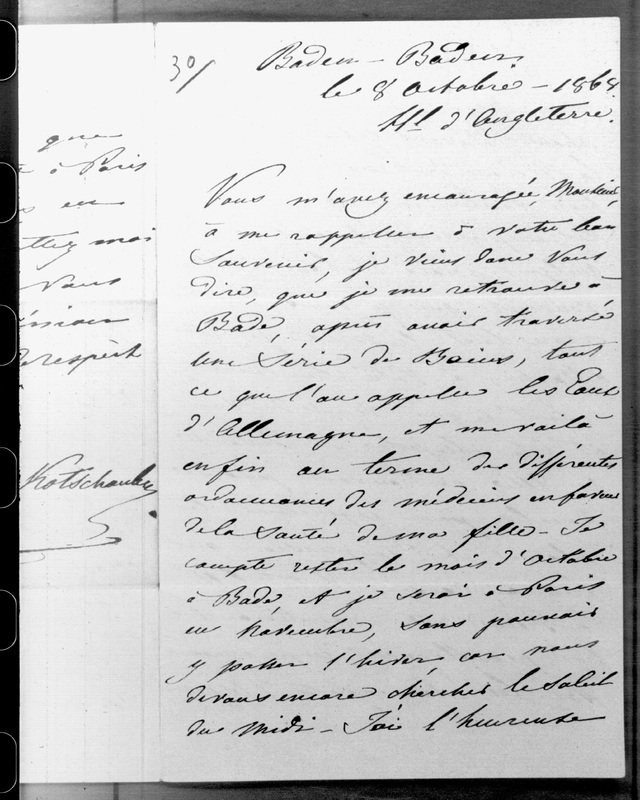 que
à Paris
en
mettez moi
Vous
respect
Kotschoubey
30/
Baden-Baden.
le 8 Octobre - 1868
Hl d'Angleterre.
Vous m'avez encouragée, Monsieur,
à me rappeller à votre bon
Souvenir, je viens donc Vous
dire, que je me retrouve à
Bade, après avoir traversé
une Série de Bains, tout
ce que l'on appelle les Eaux
d'Allemagne, et me voilà
enfin au terme des différentes
ordonnances des médecins en faveur
de la Santé de ma fille - Je
compte rester le mois d'Octobre
à Bade, et je serai à Paris
en Novembre, sans pouvoir
y passer l'hiver car nous
devons encore chercher le Soleil
du Midi - J'ai l'heureuse